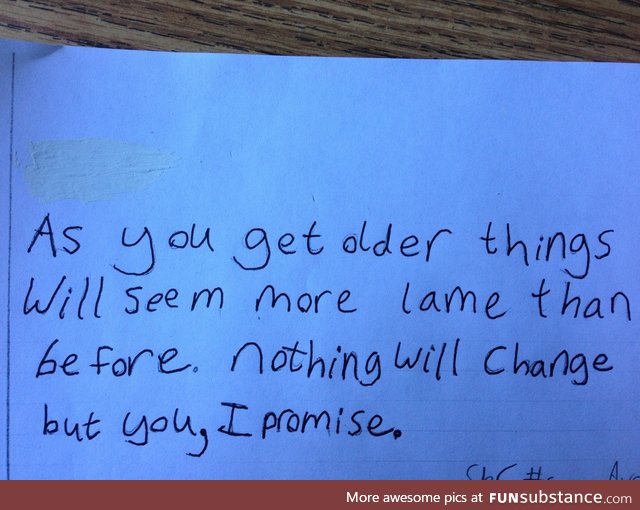 As you get older things
Will seem more lame than
before. nothing Will Change
but you, I promise.
More awesome pics at FUNsubstance.com